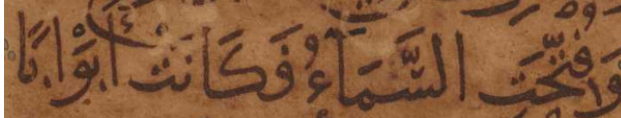 وَفُتِّحَتِ السَّمَآءُ فَكَانَتْ أَبْوَابًا